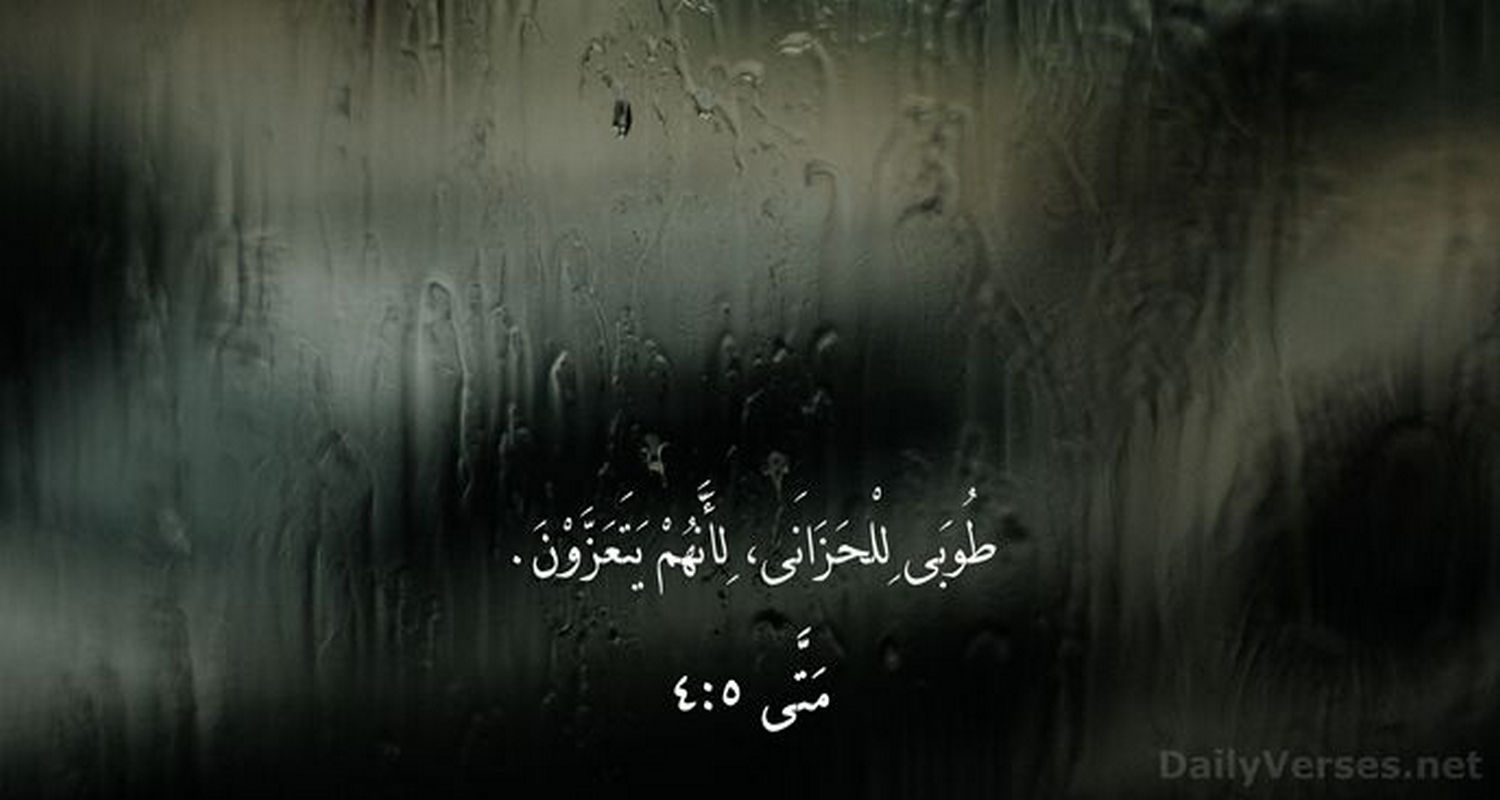 طُوبَى لِلْحَزَانَى، لِأَنَّهُمْ يَتَعَزَّوْنَ.
مَتَّى ٤:٥
DailyVerses.net